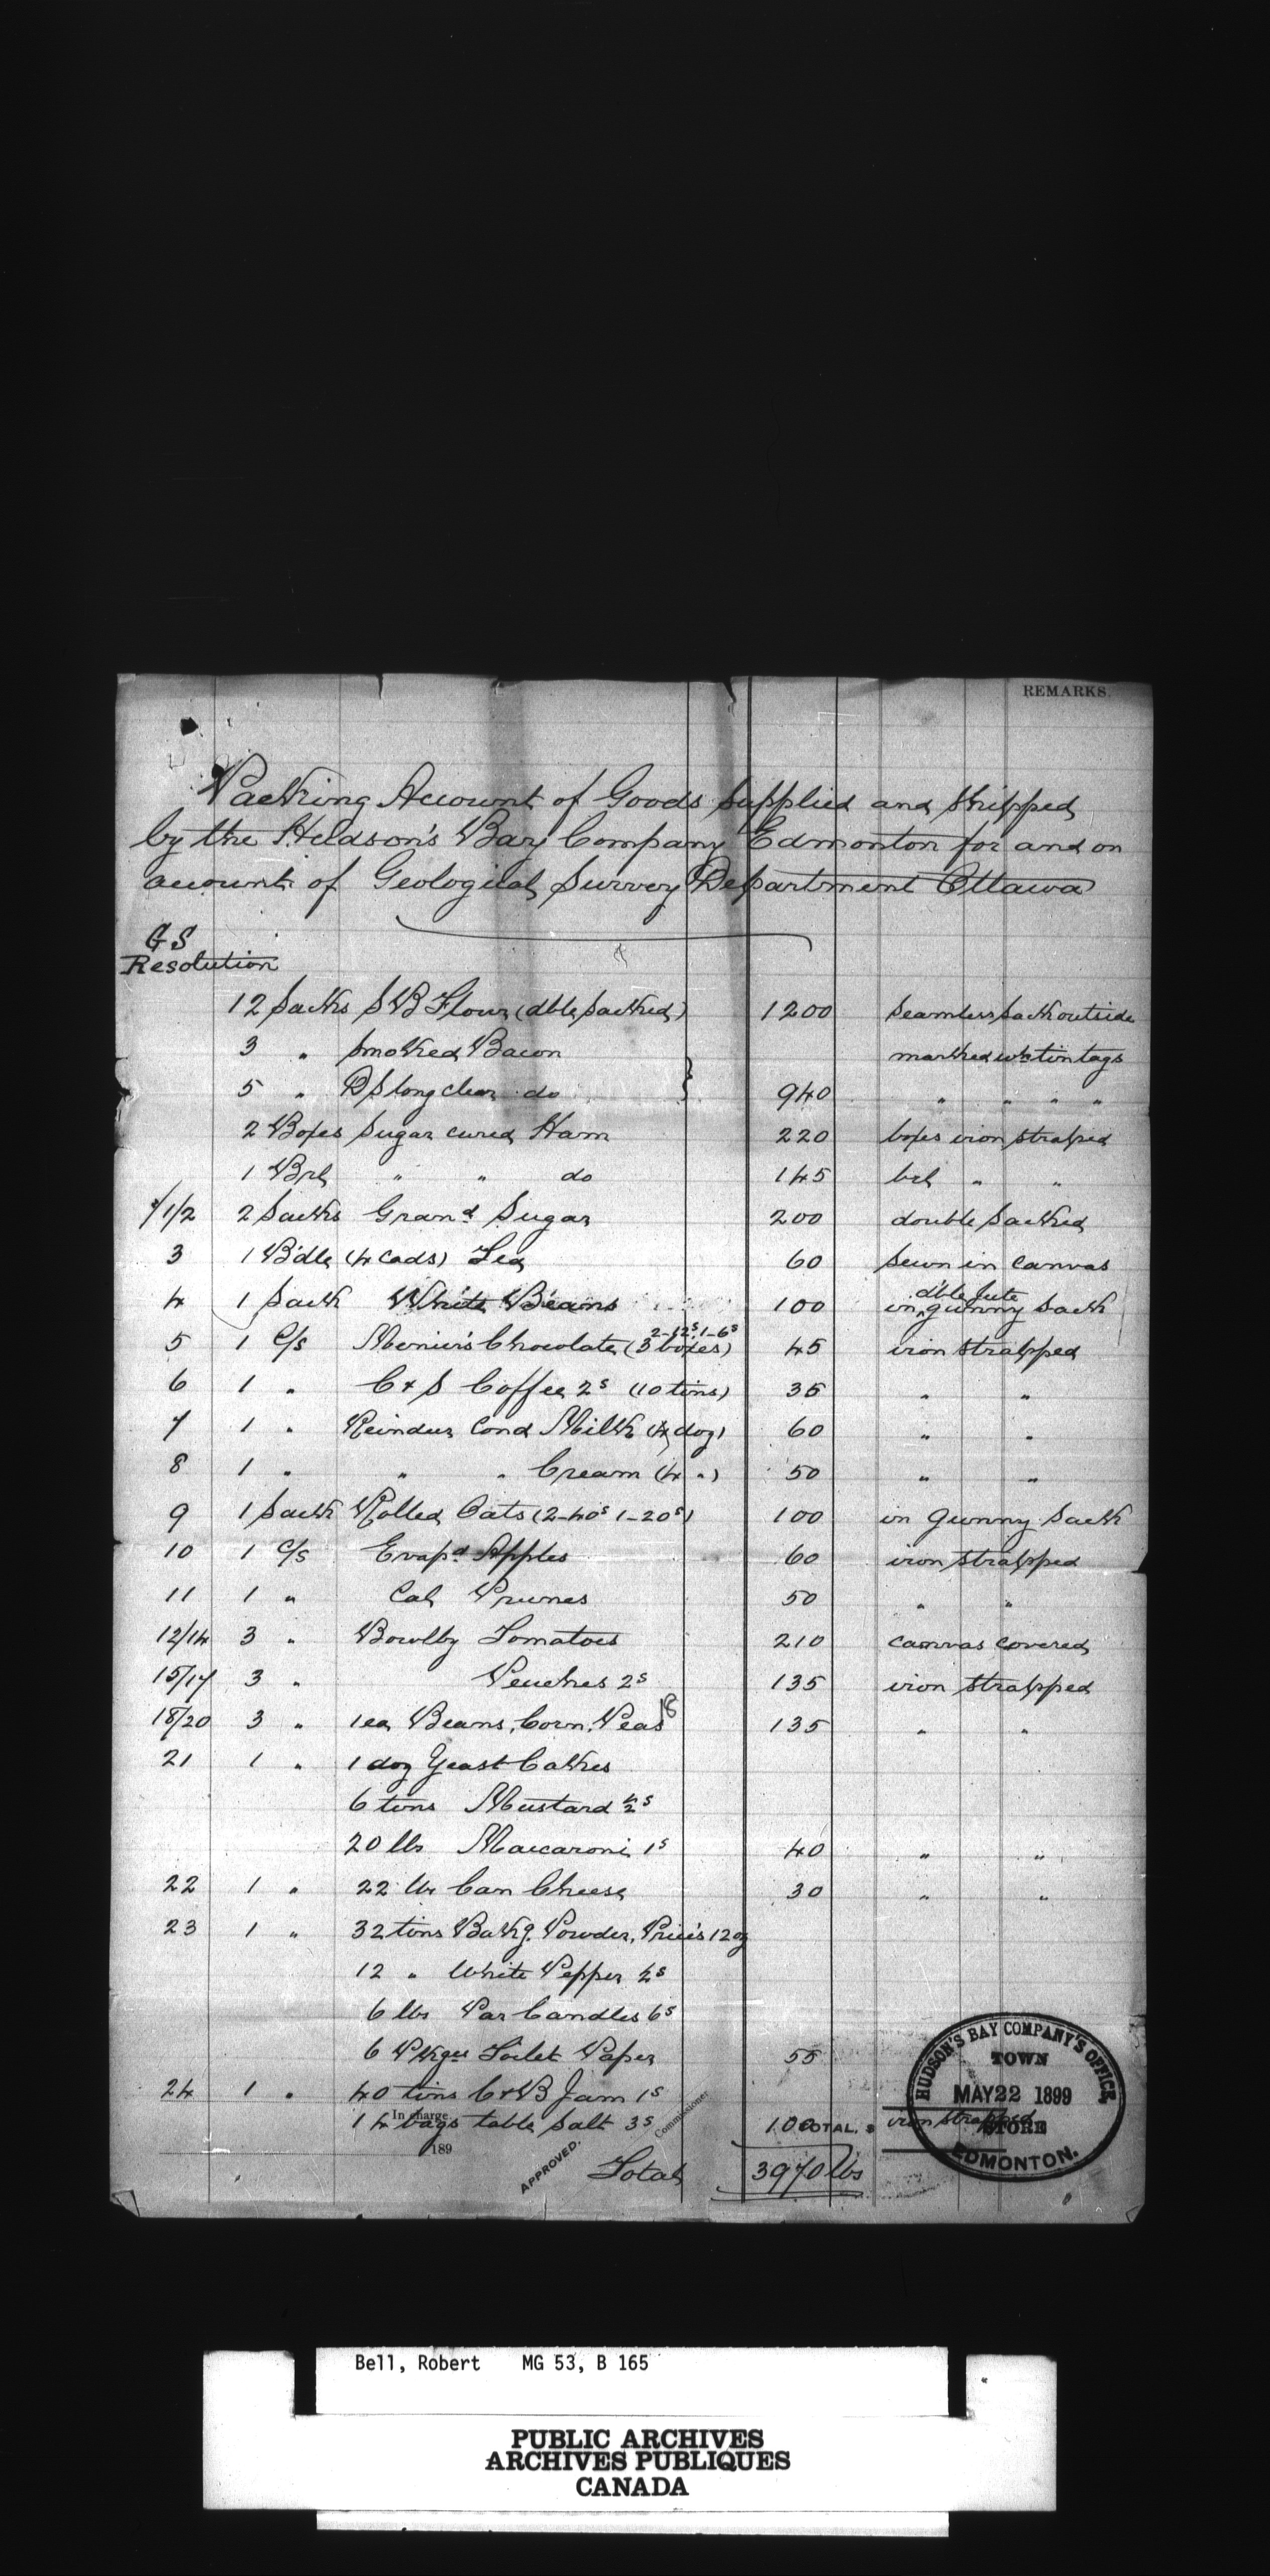 REMARKS.
Packing Account of Goods supplied and shipped
by the Hudson's Bay Company Edmonton for and on
account of Geological Survey Department Ottawa
GS
Resolution
12 Sacks SB Flour (dble sacked) 1200 Seamless sack outside
3 " Smoked Bacon marked wh tin tags
5 " DS long clear do } 940 " " " "
2 Boxes Sugar cured Ham 220 boxes iron straped
1 Brl " " do 145 brl " "
1/2 2 Sacks Grand Sugar 200 double sacked
3 1 Bdle (4 cads) Tea 60 Sewn in Canvas
4 1 Sack White Beans 100 in dble Jute gunny Sack
5 1 C/s Menier's Chocolate (3 boxes) 2-12s 1-6s 45 iron strapped
6 1 " C & S Coffee 2s (10 tins) 35 " "
7 1 " Reindeer Cond Milk (4 doz) 60 " "
8 1 " " " Cream (4 ") 50 " "
9 1 Sack Rolled Oats (2-40s 1-20s) 100 in Gunny Sack
10 1 C/s Evapd Apples 60 iron strapped
11 1 " Cal Prunes 50 " "
12/14 3 " Bowlby Tomatoes 210 Canvas covered
15/17 3 " Peaches 2s 135 iron strapped
18/20 3 " 1 ea Beans, Corn, Peas 135 " "
21 1 " 1 doz Yeast Cakes
6 tins Mustard ½s
20 lbs Maccaroni 1s 40 " "
22 1 " 22 lb Can Cheese 30 " "
23 1 " 32 tins Bakg. Powder, Price's 12 oz
12 " White Pepper ½s
6 lbs Par Candles 6s
6 Pkges Toilet Paper 55
24 1 " 40 tins C&B Jam 1s
14 bags table Salt 3s 100 iron strapped
In charge
Commissioner
TOTAL, $
189
APPROVED.
Total 3970 lbs
HUDSON'S BAY COMPANY'S OFFICE
TOWN
MAY 22 1899
STORE
EDMONTON.
Bell, Robert MG 53, B 165
PUBLIC ARCHIVES
ARCHIVES PUBLIQUES
CANADA